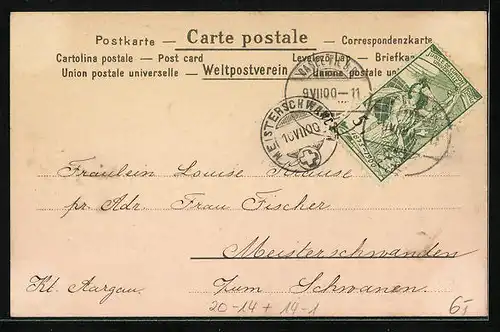 Postkarte — Carte postale — Correspondenzkarte
Cartolina postale — Post card — Levelező-Lap — Briefkaart
Union postale universelle — Weltpostverein — Unione postale un
9VII00-11
MEISTERSCHWAND
10VII00
5
Fräulein Louise Krause
pr. Adr. Frau Fischer
Meisterschwanden
Kt. Aargau. Zum Schwanen.
20-14 + 14-1
6.-